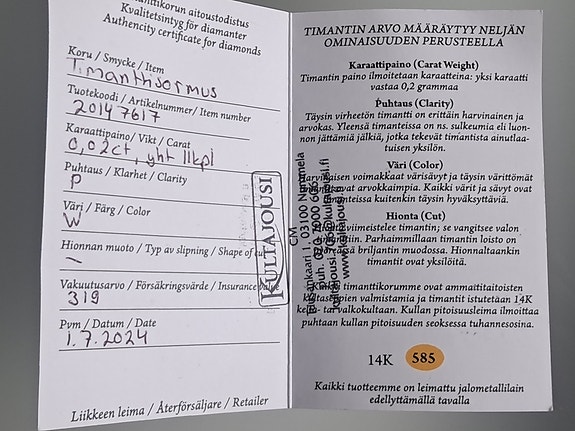 Timanttikorun aitoustodistus
Kvalitetsintyg för diamanter
Authencity certificate for diamonds
Koru / Smycke / Item
Timanttisormus
Tuotekoodi / Artikelnummer / Item number
20147617
Karaattipaino / Vikt / Carat
0,02ct, yht 11kpl
Puhtaus / Klarhet / Clarity
P
Väri / Färg / Color
W
Hionnan muoto / Typ av slipning / Shape of cut
—
Vakuutusarvo / Försäkringsvärde / Insurance value
319
Pvm / Datum / Date
1.7.2024
Liikkeen leima / Återförsäljare / Retailer
KULTAJOUSI
CM
03100 Nummela
www.kultajousi.fi
TIMANTIN ARVO MÄÄRÄYTYY NELJÄN
OMINAISUUDEN PERUSTEELLA
Karaattipaino (Carat Weight)
Timantin paino ilmoitetaan karaatteina: yksi karaatti
vastaa 0,2 grammaa
Puhtaus (Clarity)
Täysin virheetön timantti on erittäin harvinainen ja
arvokas. Yleensä timanteissa on ns. sulkeumia eli luon-
non jättämiä jälkiä, jotka tekevät timantista ainutlaa-
tuisen yksilön.
Väri (Color)
voimakkaat värisävyt ja täysin värittömät
arvokkaimpia. Kaikki värit ja sävyt ovat
timanteissa kuitenkin täysin hyväksyttäviä.
Hionta (Cut)
viimeistelee timantin; se vangitsee valon
timanttiin. Parhaimmillaan timantin loisto on
briljantin muodossa. Hionnaltaankin
timantit ovat yksilöitä.
timanttikorumme ovat ammattitaitoisten
kultaseppien valmistamia ja timantit istutetaan 14K
valkokultaan. Kullan pitoisuusleima ilmoittaa
puhtaan kullan pitoisuuden seoksessa tuhannesosina.
14K 585
Kaikki tuotteemme on leimattu jalometallilain
edellyttämällä tavalla